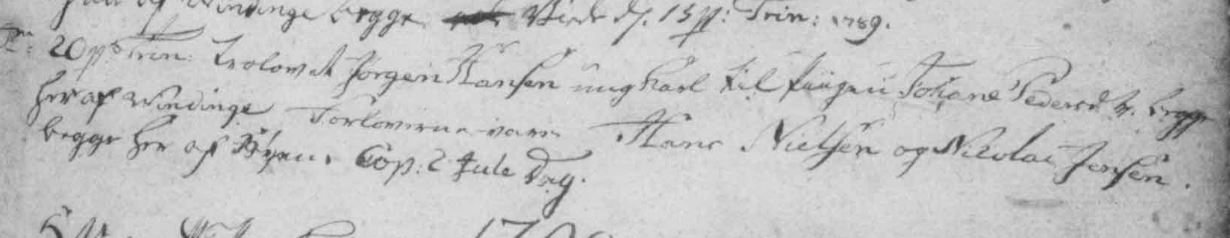 af Windinge begge Viede d. 15 p: Trin: 1789.
D: 20 p Trin: trolovet Jørgen Hansen ung Karl til Pigen Johane Pedersd. begge
her af Windinge Forloverne vare Hans Nielsen og Nikolai Jensen.
begge her af Byen. Cop: 2 Jule Dag.